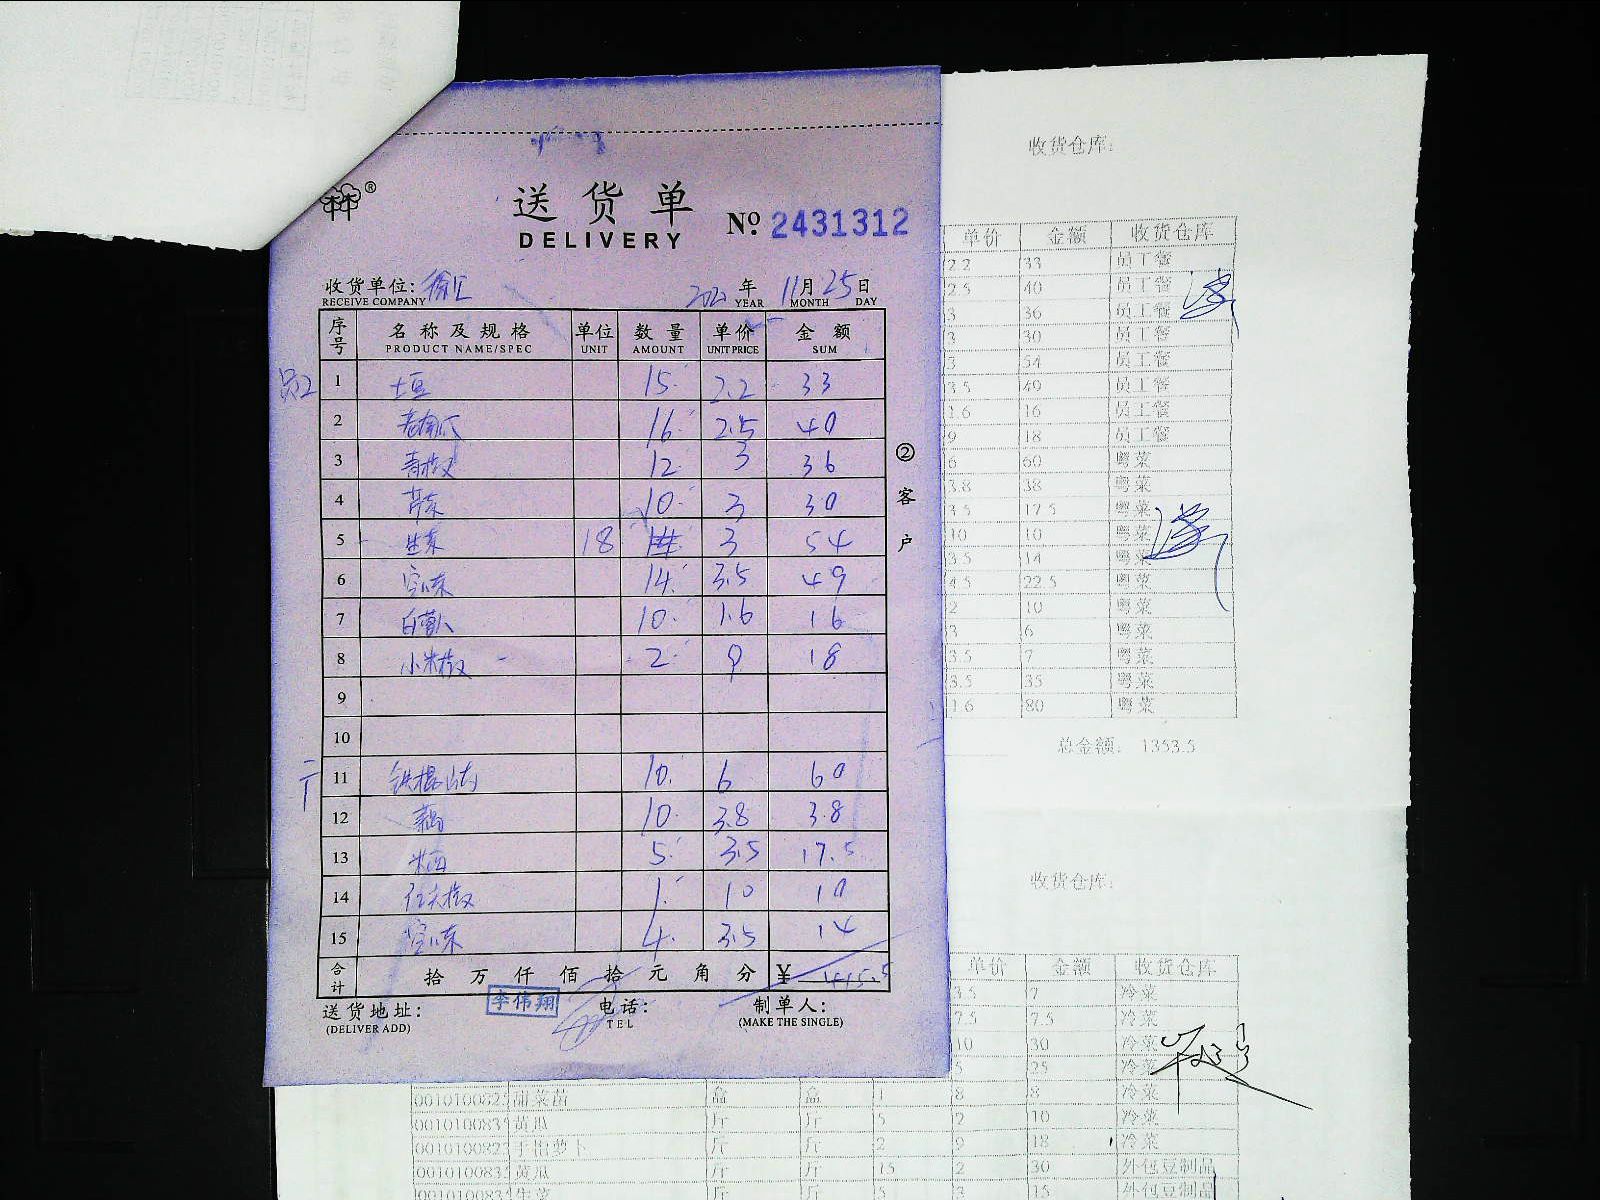 送货单
DELIVERY
№ 2431312
收货单位: 徐汇
RECEIVE COMPANY
年 11月25日
YEAR MONTH DAY
序号 名称及规格 单位 数量 单价 金额
PRODUCT NAME/SPEC UNIT AMOUNT UNIT PRICE SUM
1 土豆 15 2.2 33
2 老南瓜 16 2.5 40
3 青椒 12 3 36
4 10 3 30
5 生菜 18 3 54
6 空心菜 14 3.5 49
7 白萝卜 10 1.6 16
8 小米椒 2 9 18
9
10
11 铁棍山药 10 6 60
12 藕 10 3.8 38
13 5 3.5 17.5
14 1 10 10
15 空心菜 4 3.5 14
合计 拾万仟佰拾元角分 ¥
送货地址:
(DELIVER ADD)
李伟翔
电话:
TEL
制单人:
(MAKE THE SINGLE)
②客户
收货仓库:
单价 金额 收货仓库
2.2 33 员工餐
2.5 40 员工餐
3 36 员工餐
3 30 员工餐
3 54 员工餐
3.5 49 员工餐
1.6 16 员工餐
9 18 员工餐
6 60 粤菜
3.8 38 粤菜
3.5 17.5 粤菜
10 10 粤菜
3.5 14 粤菜
4.5 22.5 粤菜
2 10 粤菜
3 6 粤菜
3.5 7 粤菜
3.5 35 粤菜
1.6 80 粤菜
总金额: 1353.5
收货仓库:
单价 金额 收货仓库
3.5 7 冷菜
7.5 7.5 冷菜
10 30 冷菜
5 25 冷菜
甜菜苗 盒 盒 1 8 8 冷菜
黄瓜 斤 斤 5 2 10 冷菜
斤 斤 2 9 18 冷菜
黄瓜 斤 斤 15 2 30 外包豆制品
生菜 斤 斤 5 3 15 外包豆制品